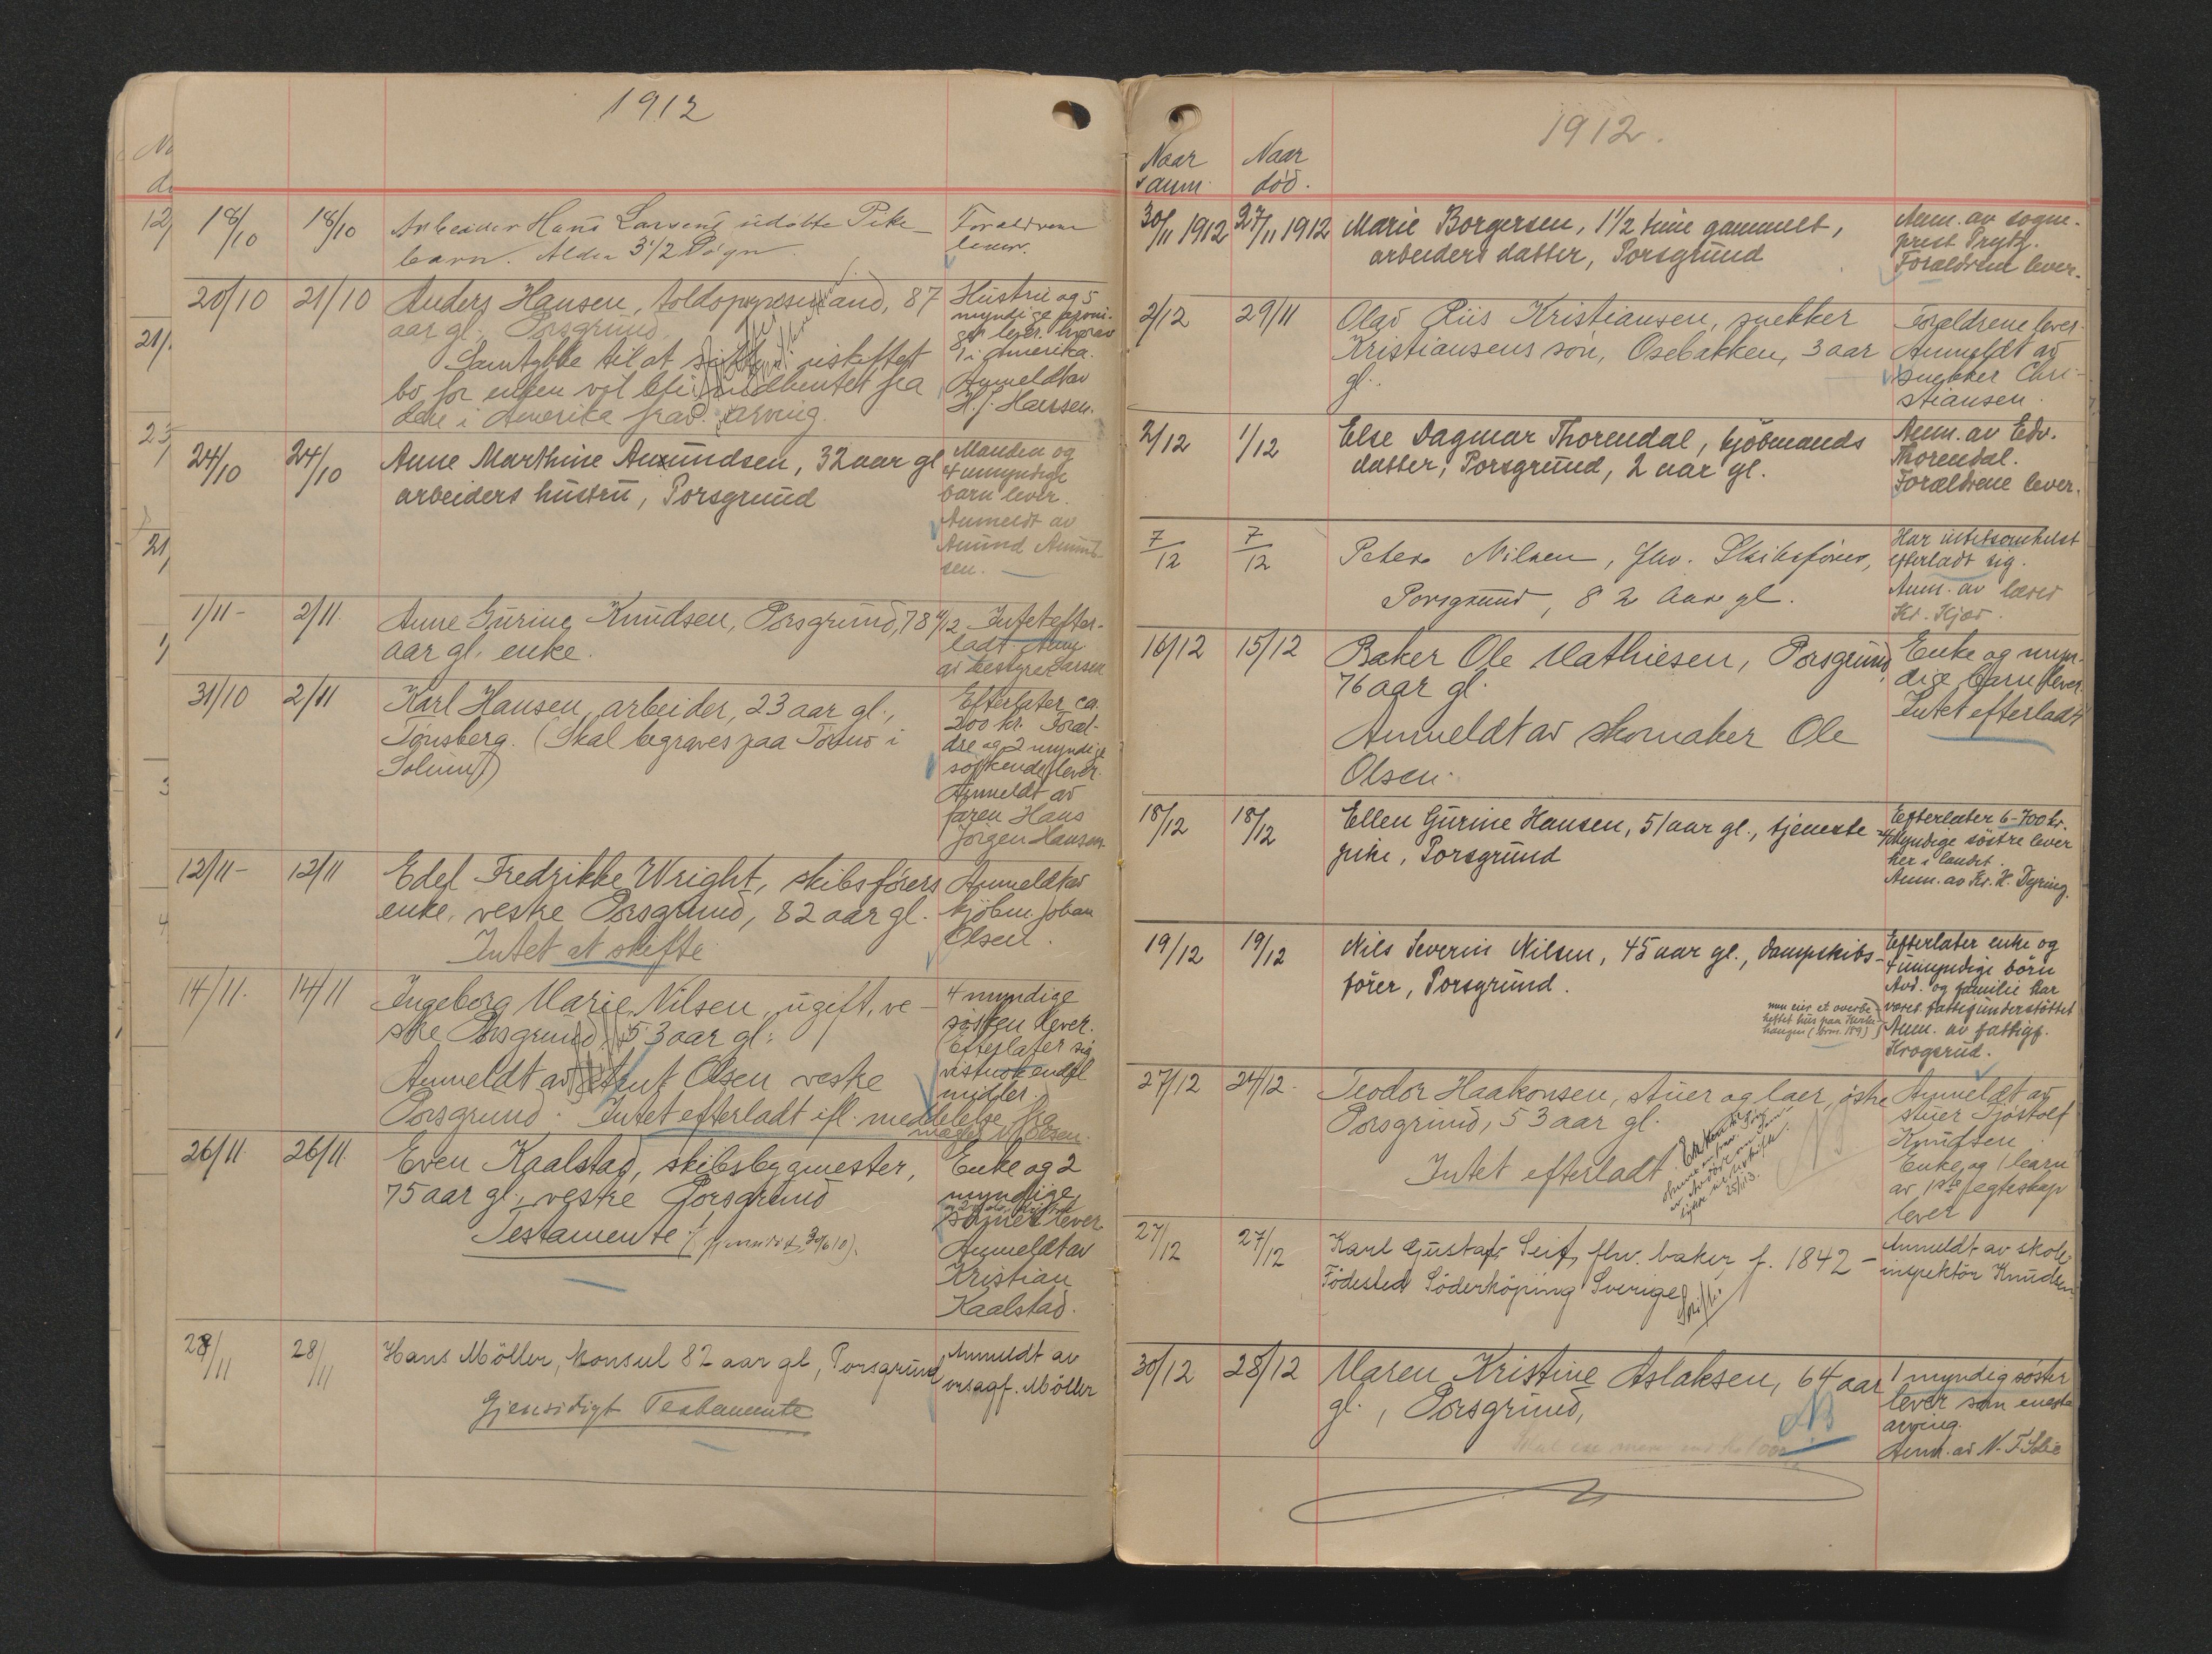 1912
18/10 18/10 Arbeider Hans Larsens udöbte Pike-
barn. Alder 3 1/2 Dögn
Forældrene
lever.
20/10 21/10 Anders Hansen, toldopp mand, 87
aar gl. Porsgrund.
Samtykke til at i uskiftet
bo for enken vil bli indhentet fra
den i Amerika arving.
Hustru og 5
myndige
lever hvorav
1 i Amerika.
Anmeldt av
H. J. Hansen.
24/10 24/10 Anne Marthine Amundsen, 32 aar gl
arbeiders hustru, Porsgrund
Manden og
4 umyndige
barn lever.
Anmeldt av
Amund Amund-
sen.
1/11 - 2/11. Anne Gurine Knudsen, Porsgrund, 78
aar gl. enke.
4/12 Intet efter-
ladt Anm.
av bestyrer Larsen
31/10 2/11 Karl Hansen, arbeider, 23 aar gl.,
Tönsberg. (Skal begraves paa i
Solum)
Efterlater ca.
200 kr. Foræl-
dre og 2 myndige
söskende lever.
Anmeldt av
faren Hans
Jörgen Hansen
12/11 - 12/11 Edel Fredrikke Wright, skibsförers
enke, vestre Porsgrund, 82 aar gl.
Intet at skifte
Anmeldt av
kjöbm. Johan
Olsen.
14/11. 14/11 Ingeborg Marie Nilsen, ugift, ve-
stre Porsgrund, 53 aar gl.
Anmeldt av Knut Olsen vestre
Porsgrund. Intet efterladt ifl. meddelelse fra
4 myndige
søsken lever.
Efterlater sig
vistnok endel
midler.
Olsen.
26/11. 26/11. Even Kaalstad, skibsbygmester,
75 aar gl., vestre Porsgrund
Testamente
Enke og 2
myndige
sönner lever
Anmeldt av
Kristian
Kaalstad.
28/11 28/11 Hans Möller, Konsul 82 aar gl, Porsgrund
Gjensidigt Testamente
Anmeldt av
orsagf. Möller
1912.
Naar anm. Naar död.
30/11 1912 27/11 1912 Marie Borgersen, 1 1/2 time gammelt,
arbeiders datter, Porsgrund
Anm. av sogne-
prest Prytz.
Forældrene lever.
2/12 29/11 Olav Riis Kristiansen, snekker
Kristiansens sön, Osebakken, 3 aar
gl.
Forældrene lever.
Anmeldt av
snekker Chri-
stiansen.
2/12 1/12 Else Dagmar Thorendal, kjöbmands
datter, Porsgrund, 2 aar gl.
Anm. av Edv.
Thorendal.
Forældrene lever.
7/12 7/12 Peter Nilsen, fhv. Skibsförer,
Porsgrund, 82 Aar gl.
Har intetsomhelst
efterladt sig.
Anm. av lærer
Kr. Kjær.
16/12 15/12 Baker Ole Mathiesen, Porsgrund,
76 aar gl.
Anmeldt av skomaker Ole
Olsen.
Enke og myn-
dige barn lever
Intet efterladt
18/12 18/12 Ellen Gurine Hansen, 51 aar gl., tjeneste-
pike, Porsgrund
Efterlater 6-700 kr.
Myndige söstre lever
her i landet.
Anm. av Kr. H. Dyring.
19/12 19/12 Nils Severin Nilsen, 45 aar gl., dampskibs-
förer, Porsgrund.
Efterlater enke og
4 umyndige börn
Avd. og familie har
været fattigunderstöttet
Anm. av fattigf.
Krogsrud.
men eier et overbe-
heftet hus paa
27/12 24/12. Teodor Haakonsen, stuer og laer, østre
Porsgrund, 53 aar gl.
Intet efterladt.
25/1 13.
Anmeldt av
stuer Tjöstolf
Knudsen.
Enke og 1 barn
av 1ste egteskap
lever
27/12 27/12 Karl Gustaf Seif, fhv. baker, f. 1842 -
Födested Söderköping Sverige
Skifte.
Anmeldt av skole-
inspektör Knudsen
30/12 28/12 Maren Kristine Aslaksen, 64 aar
gl., Porsgrund,
NB
1 myndig söster
lever som eneste
arving.
Anm. av N. F.